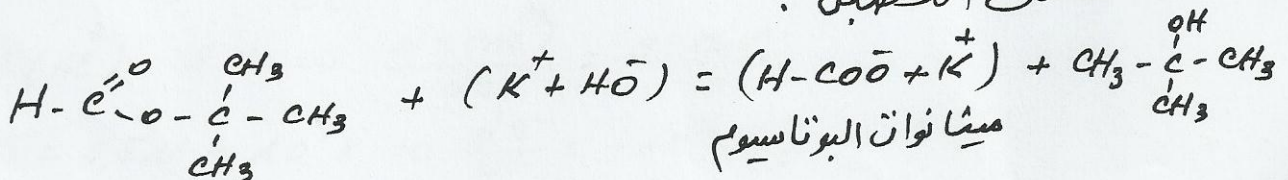 OH
H-C=O-O-C(CH3)(CH3)-CH3 + (K⁺+HO⁻) = (H-COO⁻+K⁺) + CH3-C-CH3
CH3
ميثانوات البوتاسيوم